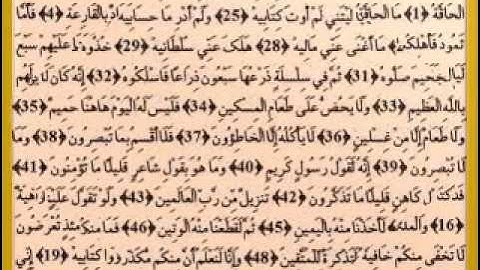 الحاقة ﴿1﴾ ما الحاقة ليتني لم أوت كتابيه ﴿25﴾ ولم أدر ما حسابيه بالقارعة ﴿4﴾ فأما
ثمود فأهلكهم ما أغنى عني ماليه ﴿28﴾ هلك عني سلطانيه ﴿29﴾ خذوه عليهم سبع
الجحيم صلوه ﴿31﴾ ثم في سلسلة ذرعها سبعون ذراعا فاسلكوه ﴿32﴾ إنه كان لا
بالله العظيم ﴿33﴾ ولا يحض على طعام المسكين ﴿34﴾ فليس له اليوم هاهنا حميم ﴿35﴾
ولا طعام إلا من غسلين ﴿36﴾ لا يأكله إلا الخاطؤون ﴿37﴾ فلا أقسم بما تبصرون ﴿38﴾ وما
لا تبصرون ﴿39﴾ إنه لقول رسول كريم ﴿40﴾ وما هو بقول شاعر قليلا ما تؤمنون ﴿41﴾
كاهن قليلا ما تذكرون ﴿42﴾ تنزيل من رب العالمين ﴿43﴾ ولو تقول علينا واهية
﴿16﴾ والملك لأخذنا منه باليمين ﴿45﴾ ثم لقطعنا منه الوتين ﴿46﴾ فما منكم تعرضون
لا تخفى منكم خافية لتذكرة للمتقين ﴿48﴾ وإنا لنعلم أن منكم كتابيه ﴿19﴾ إني